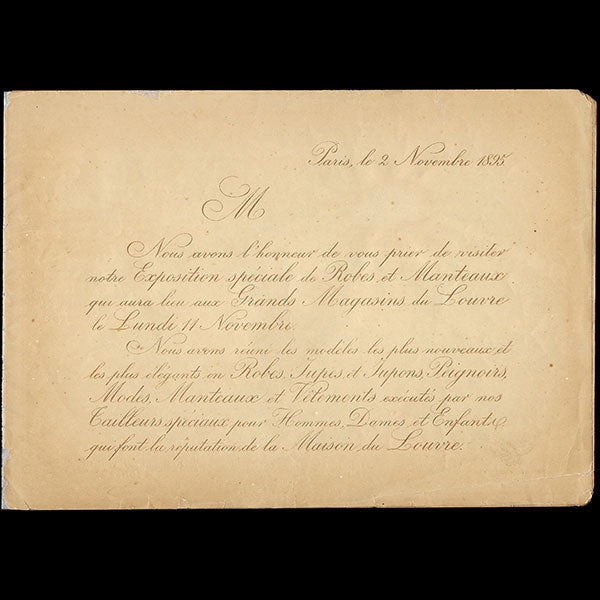 Paris, le 2 Novembre 1895
M
Nous avons l'honneur de vous prier de visiter
notre Exposition spéciale de Robes et Manteaux
qui aura lieu aux Grands Magasins du Louvre
le Lundi 11 Novembre.
Nous avons réuni les modèles les plus nouveaux et
les plus élégants en Robes, Jupes et Jupons, Peignoirs,
Modes, Manteaux et Vêtements exécutés par nos
Tailleurs spéciaux pour Hommes, Dames et Enfants
qui font la réputation de la Maison du Louvre.